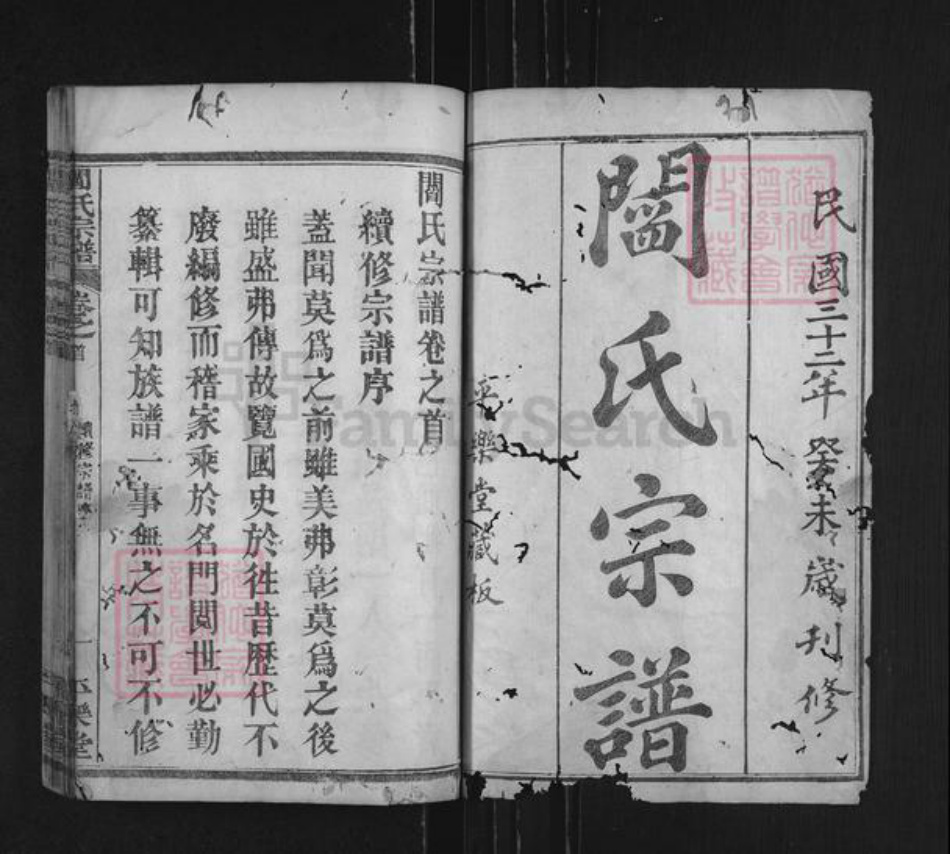 民國三十二年癸未歲刊修
閻氏宗譜
平樂堂藏板
閻氏宗譜卷之首
續修宗譜序
蓋聞莫爲之前雖美弗彰莫爲之後
雖盛弗傳故覽國史於徃昔歷代不
廢編修而稽家乘於名門閲世必勤
纂輯可知族譜一事無之不可不修
閻氏宗譜
卷之首
續修宗譜序
一
樂堂
FamilySearch